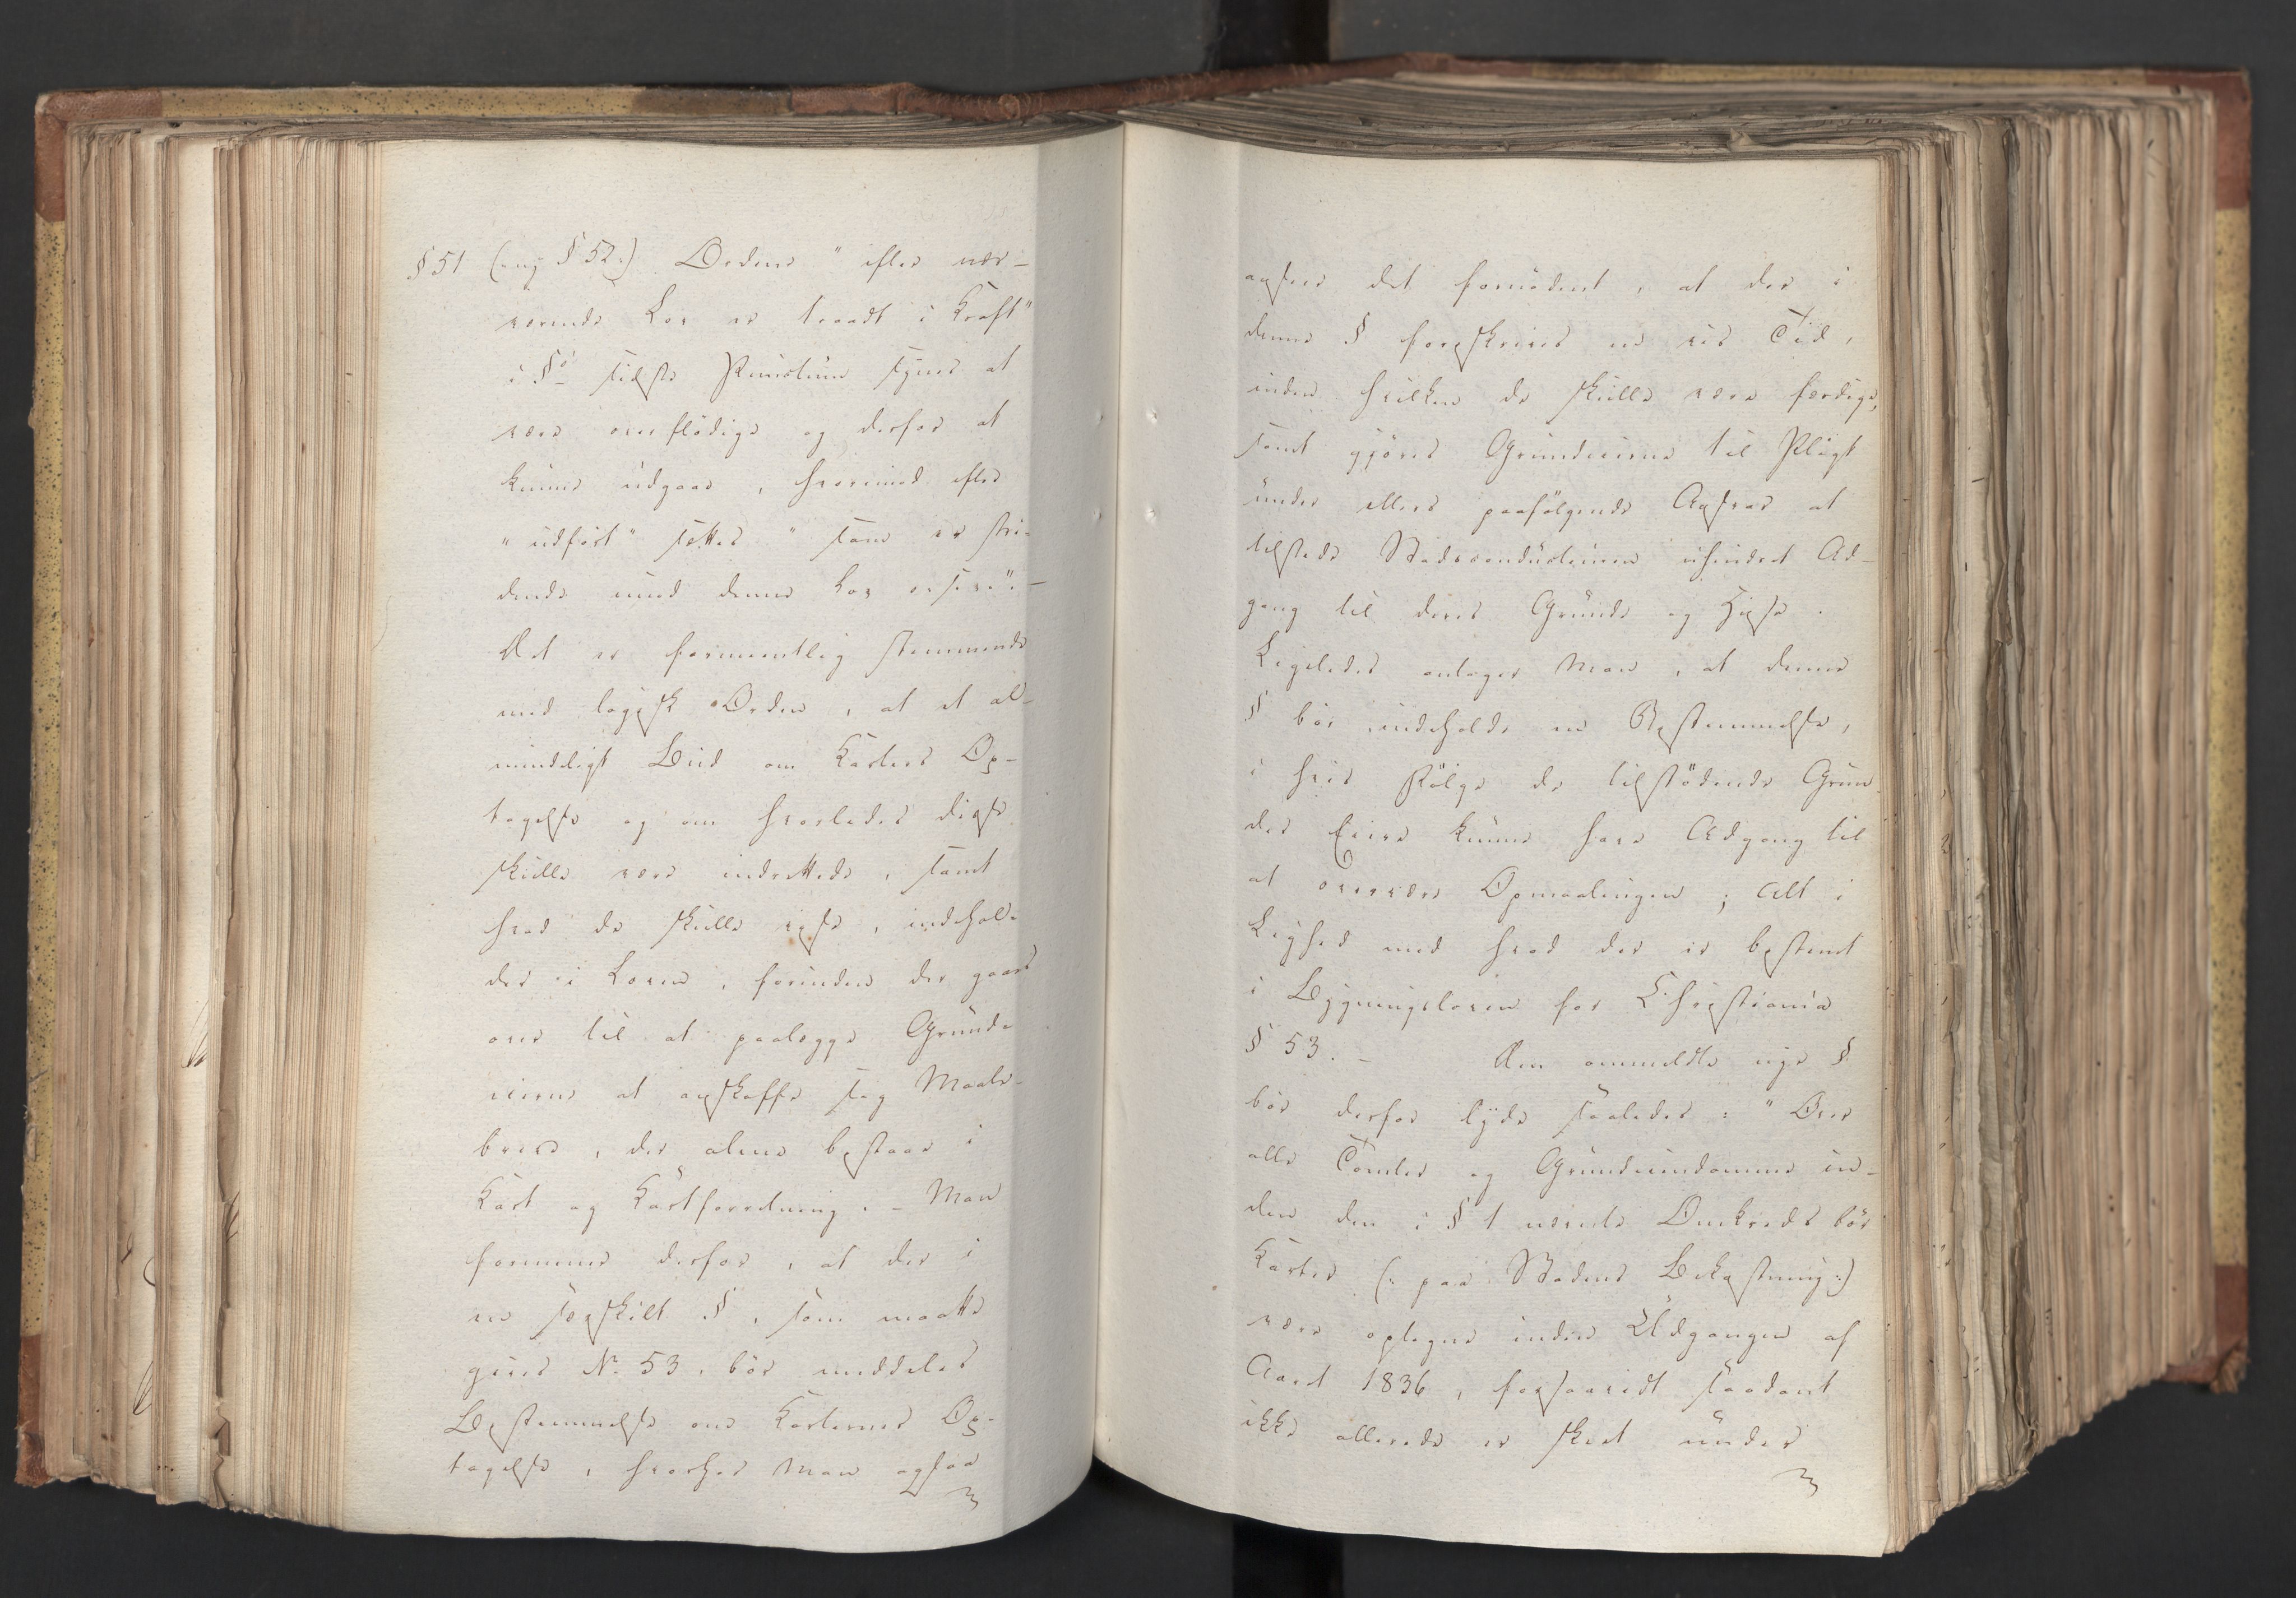 § 51 (: ny § 52 :) Ordene "efter nær-
værende Lov er traadt i Kraft"
i §s sidste Punctum synes at
være overflödige og derfor at
kunne udgaae, hvorimod efter
"udført" sættes "som er stri-
dende imod denne Lov
Det er formeentlig stemmende
med logisk Orden, at et al-
mindeligt Bud om Karters Op-
tagelse og om hvorledes disse
skulle være indrettede, samt
hvad de skulle vise, indehol-
des i Loven, forinden der gaaes
over til at paalægge Grund-
eierne at anskaffe sig Maale-
breve, der alene bestaae i
Kart og Kartforretning. – Man
formener derfor, at der i
en særskilt §, som maatte
gives No. 53, bör meddeles
Bestemmelse om Karternes Op-
tagelse, hvorhos Man ogsaa
anseer det fornödent, at der i
denne § foreskrives en vis Tid,
inden hvilken de skulle være færdige,
samt gjöres Grundeierne til Pligt
under ellers paafölgende Ansvar at
tilstede Stadsconducteuren uhindret Ad-
gang til deres Grunde og Huse.
Ligeledes antager Man, at denne
§ bör indeholde en Bestemmelse,
i hvis Fölge de tilstödende Grun-
des Eiere kunne have Adgang til
at overvære Opmaalingen; Alt i
Liighed med hvad der er bestemt
i Bygningsloven for Christiania
§ 53. – Den ommeldte nye §
bör derfor lyde saaledes: "Over
alle Tomter og Grundeiendomme in-
den den i § 1 nævnte Omkreds bör
Karter (: paa Stadens Bekostning :)
være optagne inden Udgangen af
Aaret 1836, forsaavidt saadant
ikke allerede er skeet under